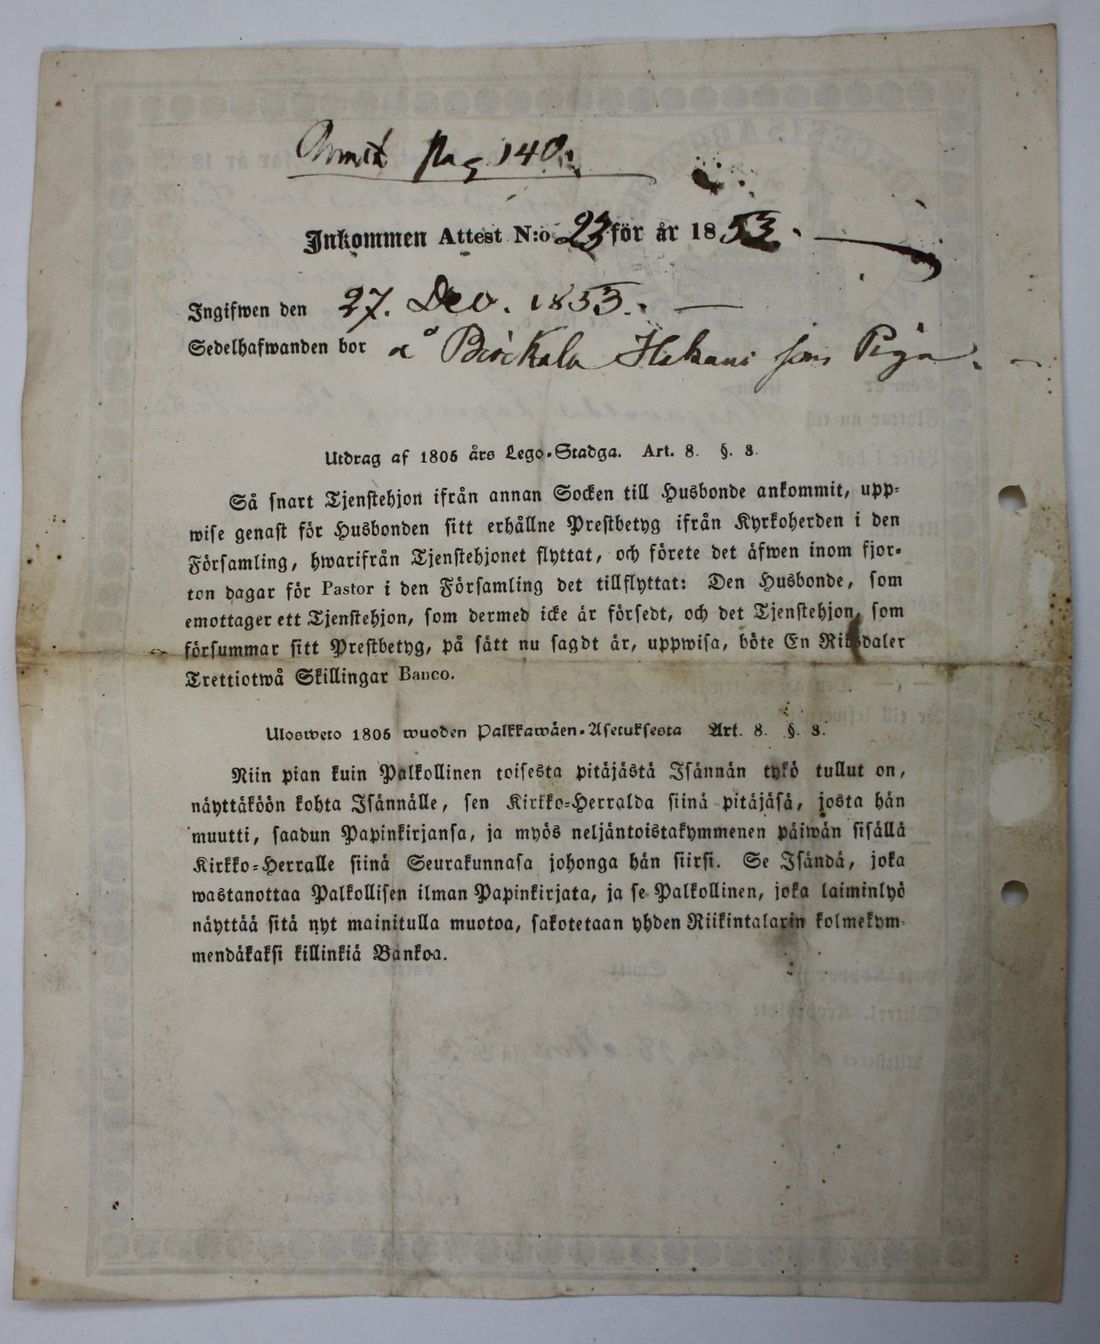 pag 140.
Inkommen Attest N:o 23 för år 1853.
Ingifwen den 27. Dec. 1853.
Sedelhafwanden bor å Björkala som Piga.
Utdrag af 1805 års Lego-Stadga. Art. 8. §. 3.
Så snart Tjenstehjon ifrån annan Socken till Husbonde ankommit, upp-
wise genast för Husbonden sitt erhållne Prestbetyg ifrån Kyrkoherden i den
Församling, hwarifrån Tjenstehjonet flyttat, och förete det äfwen inom fjor-
ton dagar för Pastor i den Församling det tillflyttat: Den Husbonde, som
emottager ett Tjenstehjon, som dermed icke är försedt, och det Tjenstehjon, som
försummar sitt Prestbetyg, på sätt nu sagdt är, uppwisa, böte En Riksdaler
Trettiotwå Skillingar Banco.
Ulosweto 1805 wuoden Palkkawäen-Asetuksesta Art. 8. §. 3.
Niin pian kuin Palkollinen toisesta pitäjästä Isännän tykö tullut on,
näyttäköön kohta Isännälle, sen Kirkko-Herralda siinä pitäjäsä, josta hän
muutti, saadun Papinkirjansa, ja myös neljäntoistakymmenen päiwän sisällä
Kirkko-Herralle siinä Seurakunnasa johonga hän siirsi. Se Isändä, joka
wastanottaa Palkollisen ilman Papinkirjata, ja se Palkollinen, joka laiminlyö
näyttää sitä nyt mainitulla muotoa, sakotetaan yhden Riikintalarin kolmekym-
mendäkaksi killinkiä Bankoa.